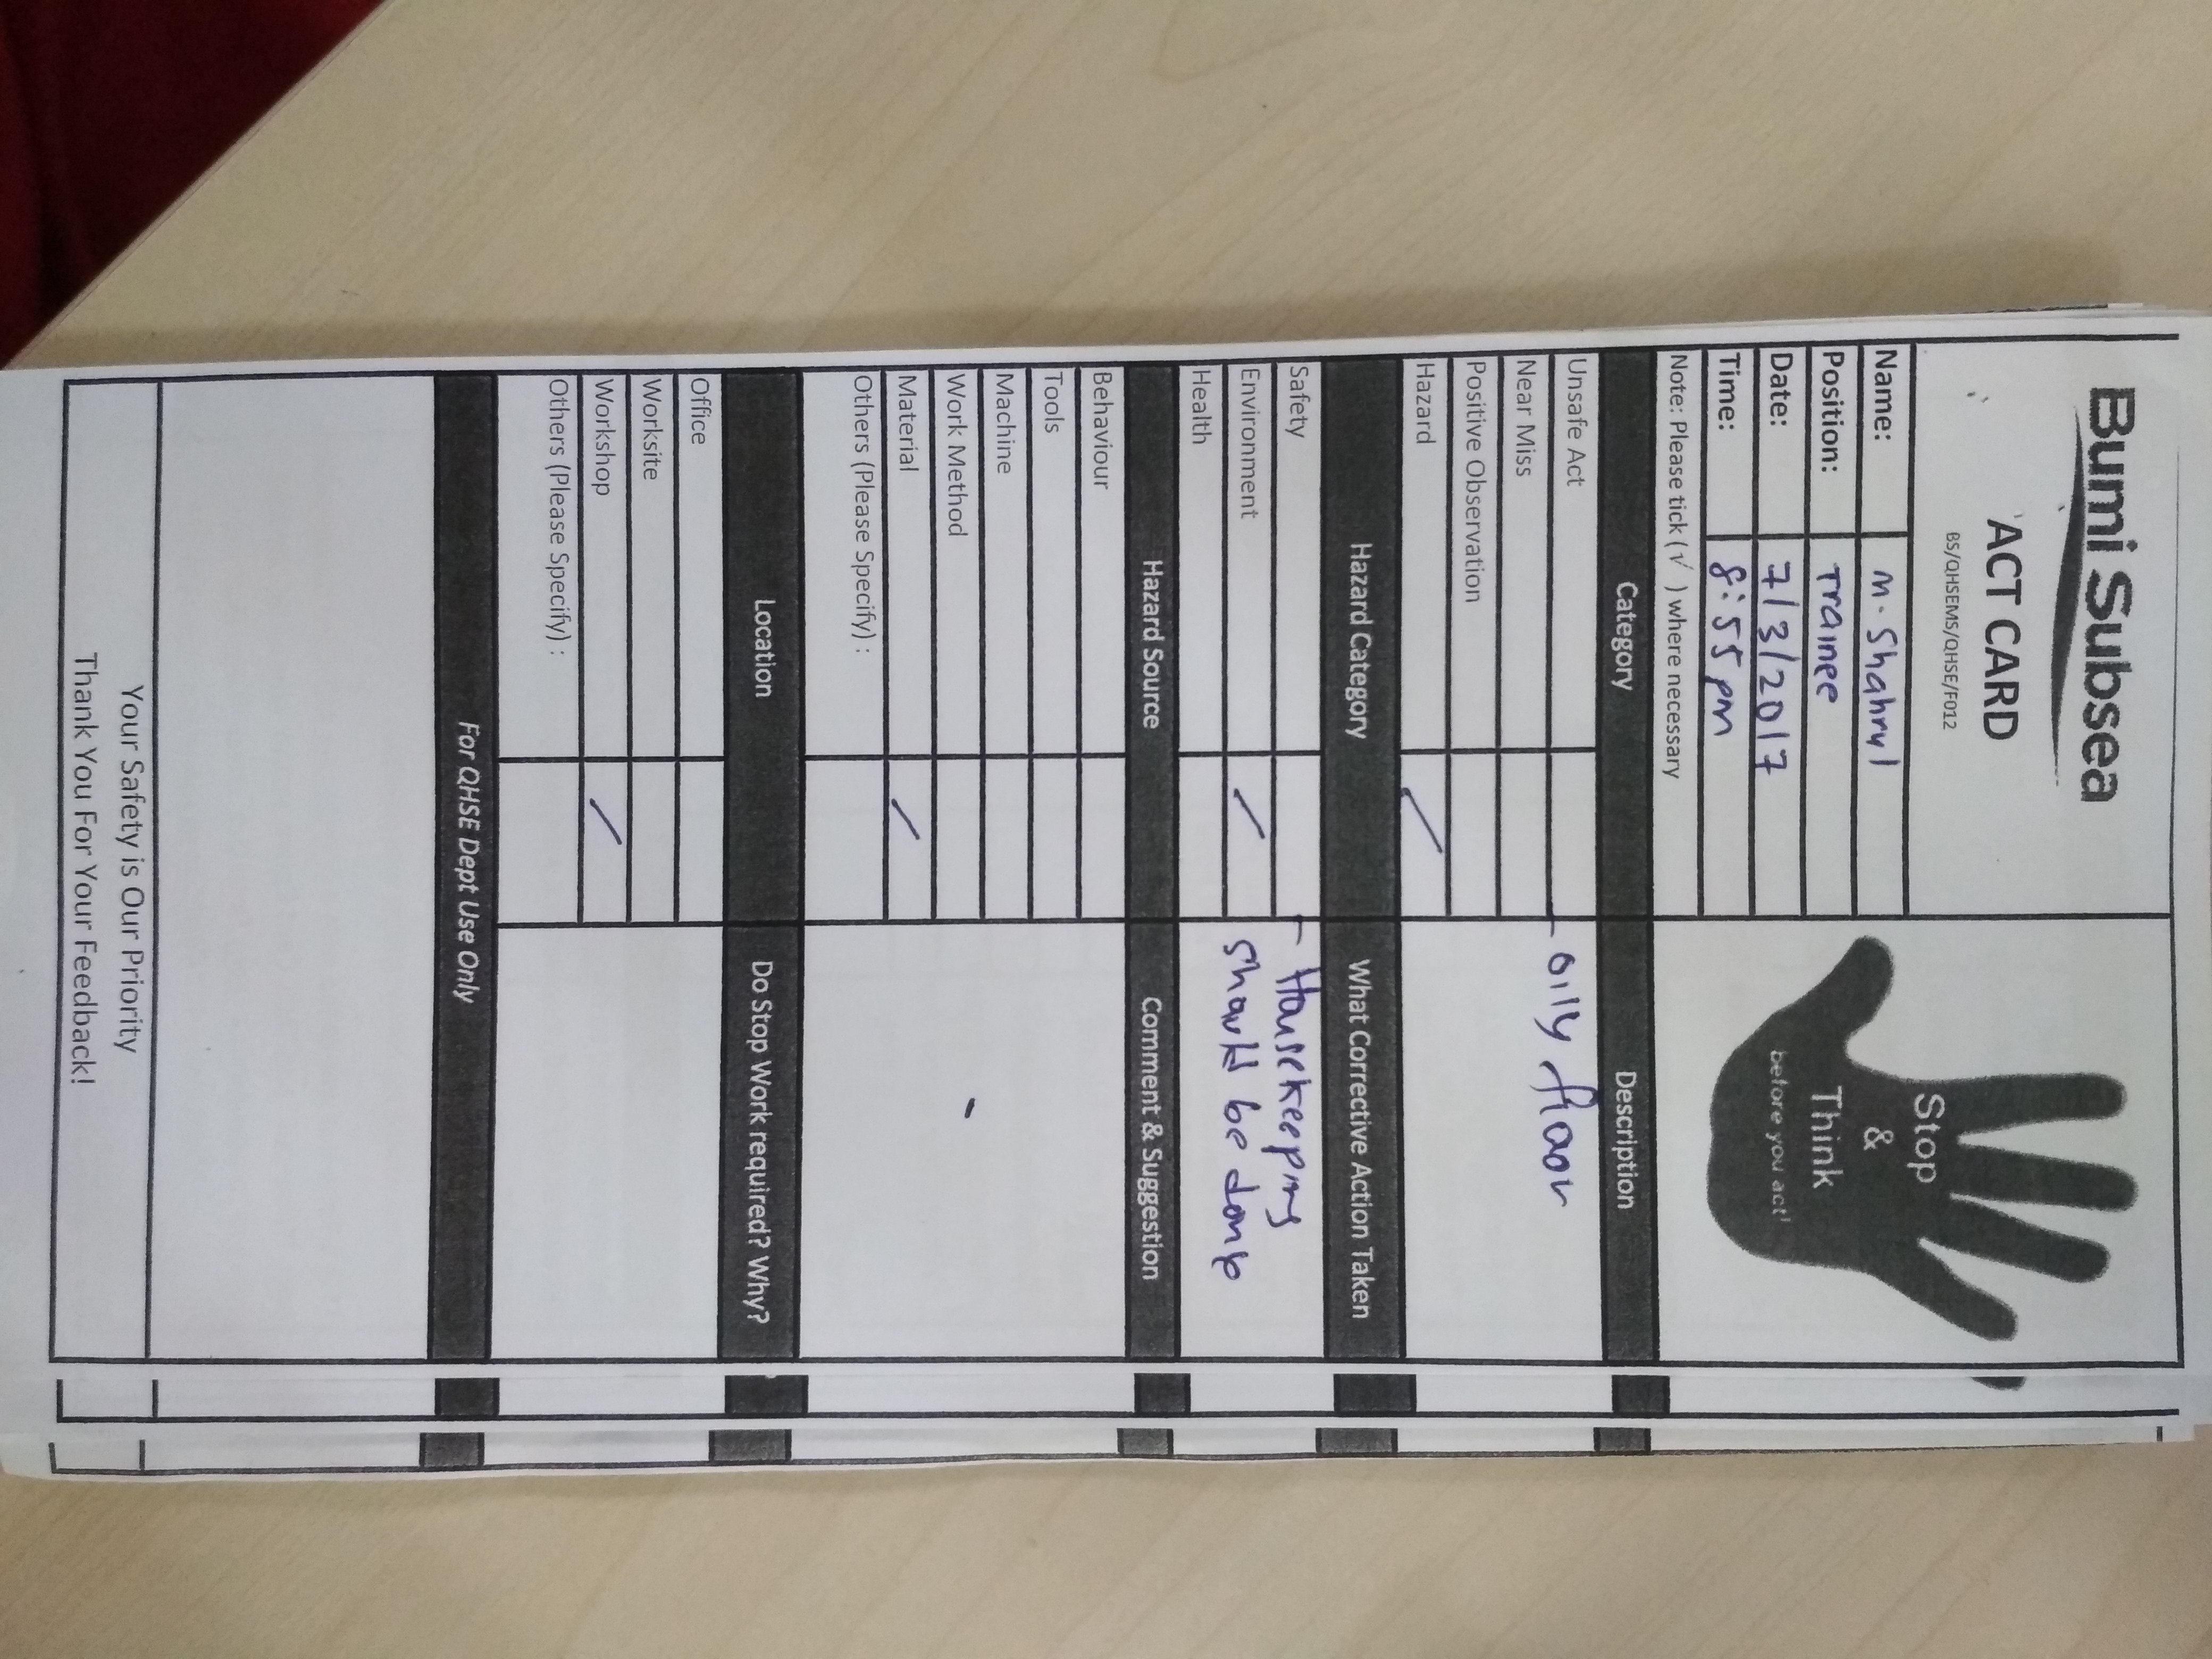 Bumi Subsea
ACT CARD
BS/QHSEMS/QHSE/F012
Stop
&
Think
before you act!
Name: M. Shahryl
Position: Trainee
Date: 7/3/2017
Time: 8:55 pm
Note: Please tick (√ ) where necessary
Category Description
Unsafe Act - oily floor
Near Miss
Positive Observation
Hazard /
Hazard Category What Corrective Action Taken
Safety - Housekeeping
Environment / should be done
Health
Hazard Source Comment & Suggestion
Behaviour
Tools
Machine
Work Method -
Material /
Others (Please Specify) :
Location Do Stop Work required? Why?
Office
Worksite
Workshop /
Others (Please Specify) :
For QHSE Dept Use Only
Your Safety is Our Priority
Thank You For Your Feedback!